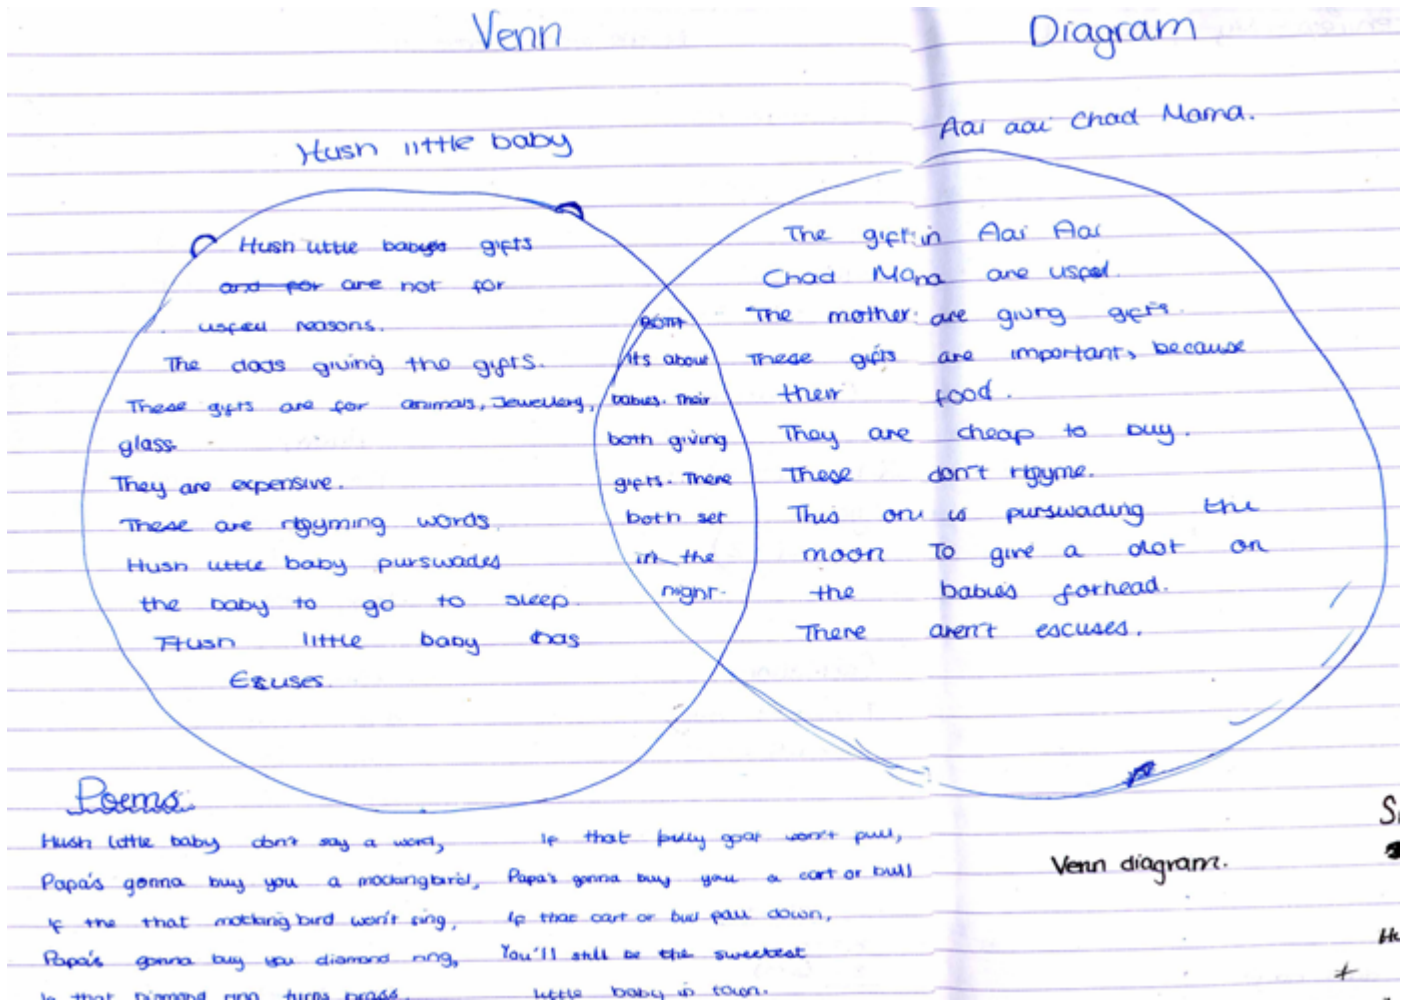 Venn Diagram
Hush little baby
Aai aai Chad Mama.
Hush little babys gifts
and for are not for
usfell reasons.
The dads giving the gifts.
These gifts are for animals, Jewellery,
glass.
They are expensive.
These are rhyming words.
Hush little baby purswades
the baby to go to sleep.
Hush little baby has
Escuses.
BOTH
Its about
babies. Their
both giving
gifts. There
both set
in the
night.
The gift in Aai Aai
Chad Mama are usfel.
The mother are giving gifts.
These gifts are important, because
their food.
They are cheap to buy.
These don't rhyme.
This one is purswading the
moon To give a dot on
the babies forhead.
There aren't escuses.
Poems
Hush little baby don't say a word,
Papa's gonna buy you a mockingbird,
if the that mocking bird won't sing,
Papa's gonna buy you diamond ring,
is that Diamond ring turns brass,
If that billy goat won't pull,
Papa's gonna buy you a cart or bull
If that cart or bull fall down,
You'll still be the sweetest
little baby in town.
Venn diagram.